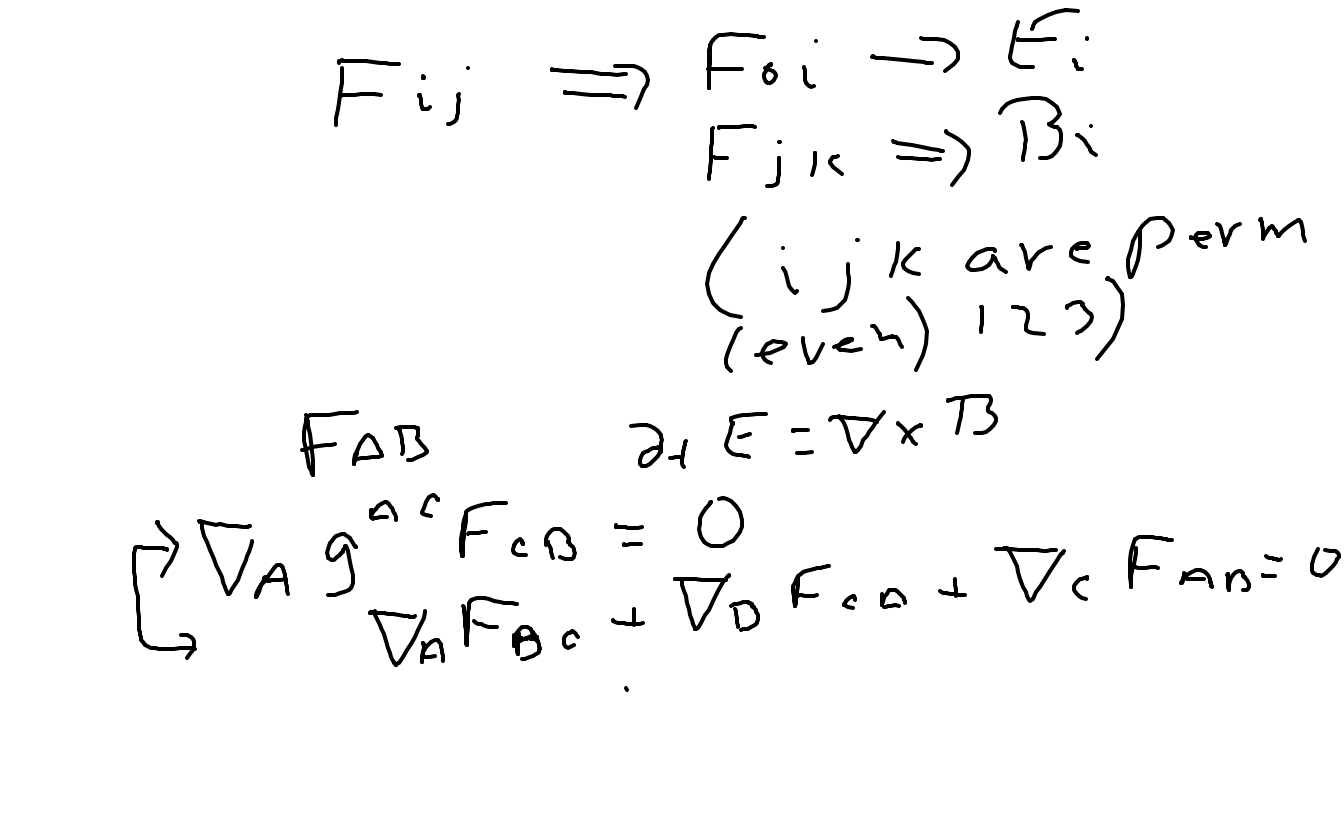 Fij ⇒ F0i → Ei
Fjk ⇒ Bi
(i j k are perm
(even) 1 2 3)
F_AB ∂t E = ∇ × B
∇_A g^AC F_CB = 0
∇_A F_BC + ∇_B F_CA + ∇_C F_AB = 0